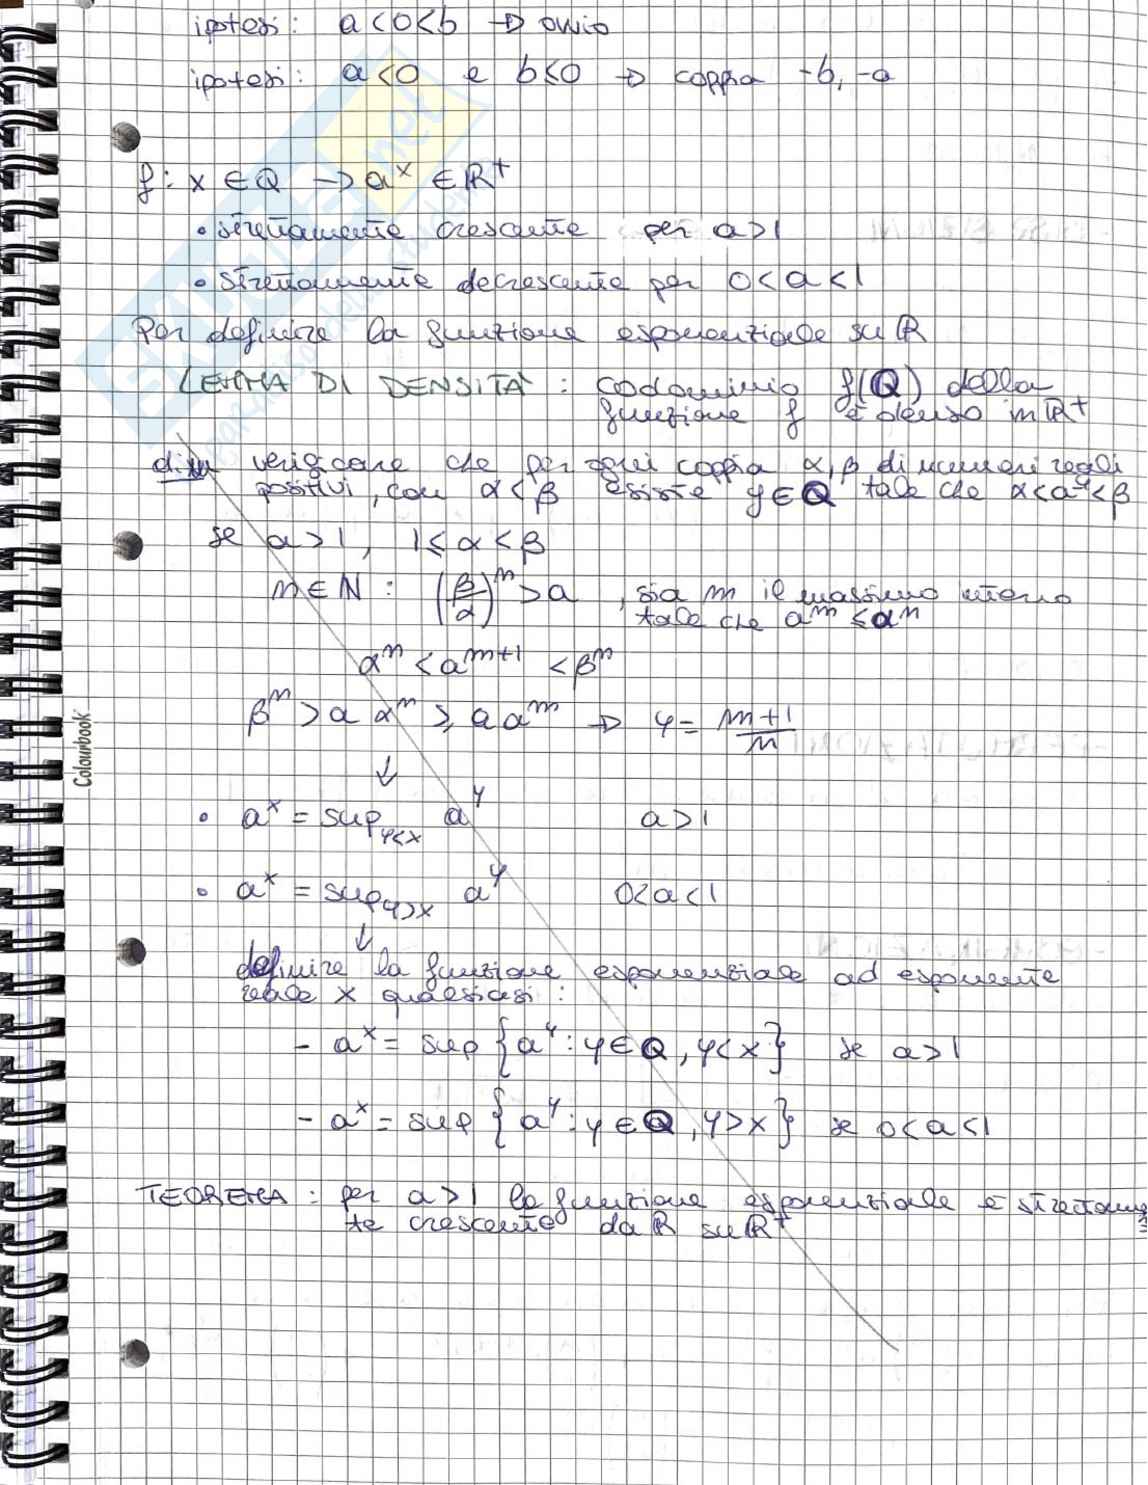 ipotesi: a<0<b → ovvio
ipotesi: a<0 e b<0 → coppia -b, -a
f: x ∈ Q → aˣ ∈ ℝ⁺
• strettamente crescente per a>1
• strettamente decrescente per 0<a<1
Per definire la funzione esponenziale su ℝ
LEMMA DI DENSITÀ: codominio f(Q) della
funzione f è denso in ℝ⁺
dim verificare che per ogni coppia α, β di numeri reali
positivi, con α<β esiste y∈Q tale che α<a^y<β
se a>1, 1≤α<β
n∈ℕ: (β/α)^n >a, sia m il massimo intero
tale che a^m ≤α^n
α^n < a^{m+1} < β^n
β^n > a α^n ≥ a a^m → y = (m+1)/n
↓
• a^x = sup_{y<x} a^y a>1
• a^x = sup_{y>x} a^y 0<a<1
↓
definire la funzione esponenziale ad esponente
reale x qualsiasi:
- a^x = sup {a^y : y∈Q, y<x} se a>1
- a^x = sup {a^y : y∈Q, y>x} se 0<a<1
TEOREMA: per a>1 la funzione esponenziale è strettamen
te crescente da ℝ su ℝ⁺
Colourbook